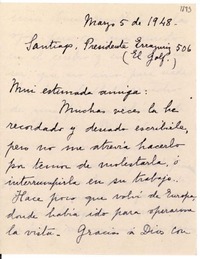 Mayo 5 de 1948.
Santiago, Presidente Errazuriz 506
(El Golf.)
Mui estimada amiga:
Muchas veces la he
recordado y deseado escribirla,
pero no me atrevía hacerlo
por temor de molestarla, ó
interrumpirla en su trabajo.
Hace poco que volví de Europa,
donde había ido para operarme
la vista. Gracias á Dios con